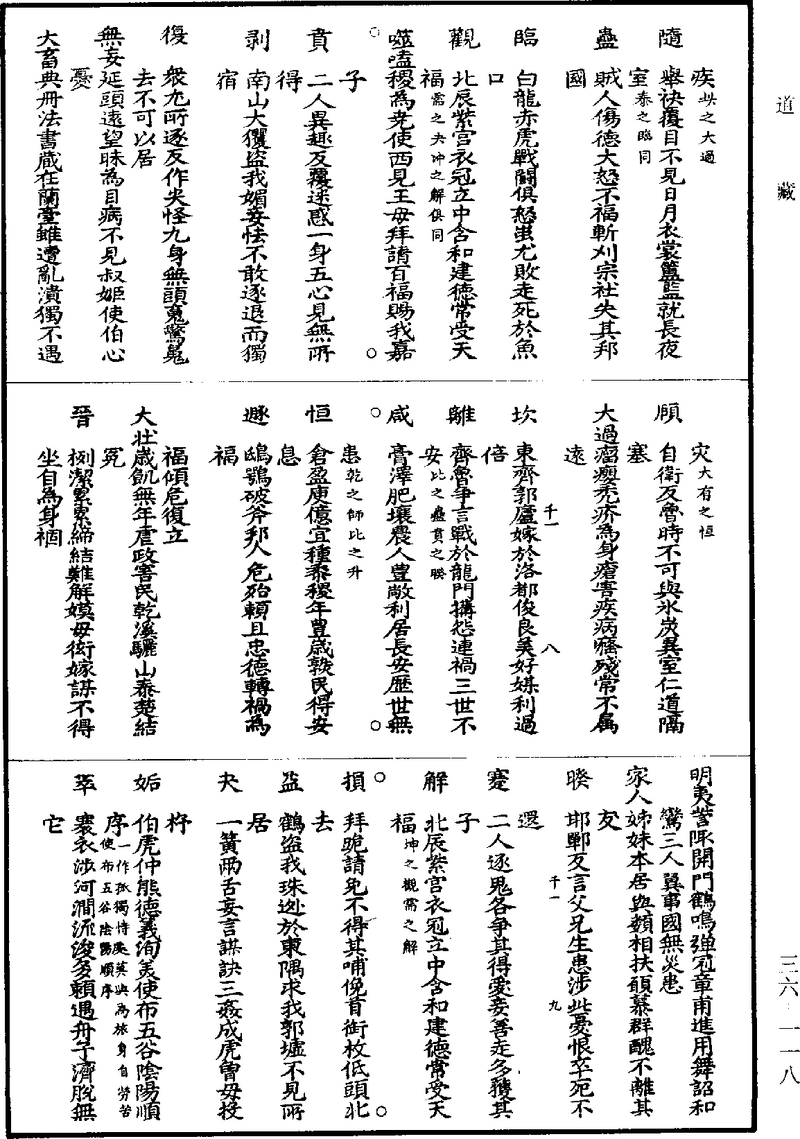 道藏
疾 此之大過
隨 舉袂覆目不見日月衣裳簠簋就長夜
室 泰之臨同
蠱 賊人傷德大怒不福斬刈宗社失其邦
國
臨 白龍赤虎戰鬭俱怒蚩尤敗走死於魚
口
觀 北辰紫宮衣冠立中含和建德常受天
福 需之夬坤之解俱同
噬嗑稷為堯使西見王母拜請百福賜我嘉
子
賁 二人異趣反覆迷惑一身五心見無所
得
剥 南山大玃盜我媚妾怯不敢逐退而獨
宿
復 衆尤所逐反作大怪九身無頭䰟驚䰟
去不可以居
無妄延頭遠望昧為目病不見叔姬使伯心
憂
大畜典冊法書藏在蘭臺雖遭亂潰獨不遇
灾 大有之恒
頤 自衛反魯時不可與氷炭異室仁道隔
塞
大過瘤癭禿疥為身瘡害疾病癃殘常不属
遠
坎 東齊郭廬嫁於洛都俊良美好媒利過
倍
離 齊魯爭言戰於龍門搆怨連禍三世不
安 比之蠱賁之睽
咸 膏澤肥壤農人豊敞利居長安歷世無
患 乾之師比之升
恒 倉盈庾億宜種黍稷年豊歲熟民得安
息
遯 鴟鴞破斧邦人危殆賴旦忠德轉禍為
福
福傾危復立
大壯歲飢無年虐政害民乾溪驪山泰楚結
冤
晉 栵潔累累締結難解嫫母衒嫁謀不得
坐自為身禍
千一 八
明夷訾啄開門鶴鳴彈冠章甫進用舞韶和
鸞三人翼事國無災患
家人姊妹本居與類相扶頤慕群醜不離其
友
睽 邯鄲反言父兄生患涉此憂恨卒死不
還
蹇 二人逐兎各爭其得愛妾善走多獲其
子
解 北辰紫宮衣冠立中含和建德常受天
福 坤之觀需之解
損 拜跪請免不得其哺俛首銜枚低頭北
去
益 鶴盜我珠逃於東隅求我郭墟不見所
居
夬 一簧兩舌妄言謀訣三姦成虎曽母投
杼
姤 伯虎仲熊德義洵美使布五谷陰陽順
序 一作孤獨特處莫與為旅身自勞苦
使布五谷陰陽順序
萃 褰衣涉河澗流浚多賴遇舟子濟脫無
它
千一 九
三六—一一八